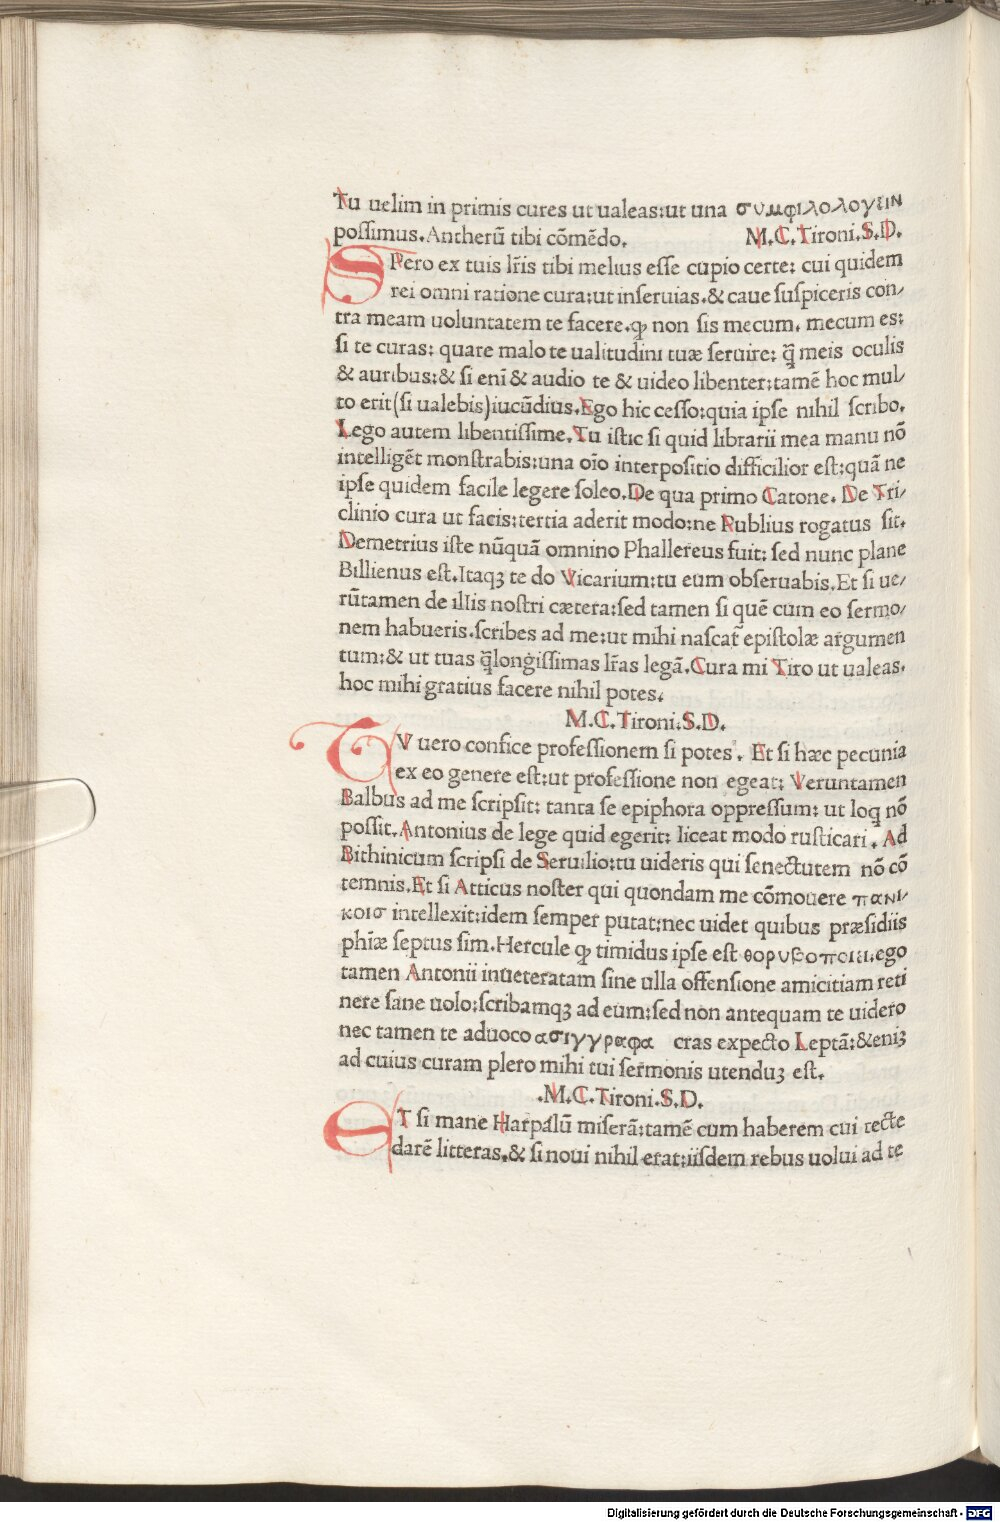 Tu uelim in primis cures ut ualeas:ut una συμφιλολογειν
possimus.Antherū tibi cōmēdo. M.C.Tironi.S.D.
SPero ex tuis lr̄is tibi melius esse cupio certe: cui quidem
rei omni ratione cura:ut inseruias.& caue suspiceris con/
tra meam uoluntatem te facere.ꝙ non sis mecum. mecum es:
si te curas: quare malo te ualitudini tuæ seruire: q̄ meis oculis
& auribus:& si eni̅ & audio te & uideo libenter:tamē hoc mul/
to erit(si ualebis)iucūdius.Ego hic cesso:quia ipse nihil scribo.
Lego autem libentissime.Tu istic si quid librarii mea manu nō
intelligēt monstrabis:una oi̅o interpositio difficilior est:quā ne
ipse quidem facile legere soleo.De qua primo Catone. De Tri/
clinio cura ut facis:tertia aderit modo:ne Publius rogatus sit.
Demetrius iste nūquā omnino Phallereus fuit: sed nunc plane
Billienus est.Itaqꝫ te do Vicarium:tu eum obseruabis.Et si ue/
rūtamen de illis nostri cætera:sed tamen si quē cum eo sermo/
nem habueris.scribes ad me:ut mihi nascat̄ epistolæ argumen
tum:& ut tuas q̄longissimas lr̄as legā.Cura mi Tiro ut ualeas.
hoc mihi gratius facere nihil potes.
M.C.Tironi.S.D.
TV uero confice professionem si potes. Et si hæc pecunia
ex eo genere est:ut professione non egeat: Veruntamen
Balbus ad me scripsit: tanta se epiphora oppressum: ut loq̄ nō
possit.Antonius de lege quid egerit: liceat modo rusticari. Ad
Bithinicum scripsi de Seruilio:tu uideris qui senectutem nō cō
temnis.Et si Atticus noster qui quondam me cōmouere πανι/
κοισ intellexit:idem semper putat:nec uidet quibus præsidiis
phi̅æ septus sim.Hercule ꝙ timidus ipse est θορυβοποιει.ego
tamen Antonii inueteratam sine ulla offensione amicitiam reti
nere sane uolo:scribamqꝫ ad eum:sed non antequam te uidero
nec tamen te aduoco ασιγγραφα cras expecto Leptā:&eniꝫ
ad cuius curam plero mihi tui sermonis utenduꝫ est.
.M.C.Tironi.S.D.
ET si mane Harpalū miserā:tamē cum haberem cui recte
darē litteras.& si noui nihil erat:iisdem rebus uolui ad te
Digitalisierung gefördert durch die Deutsche Forschungsgemeinschaft - DFG